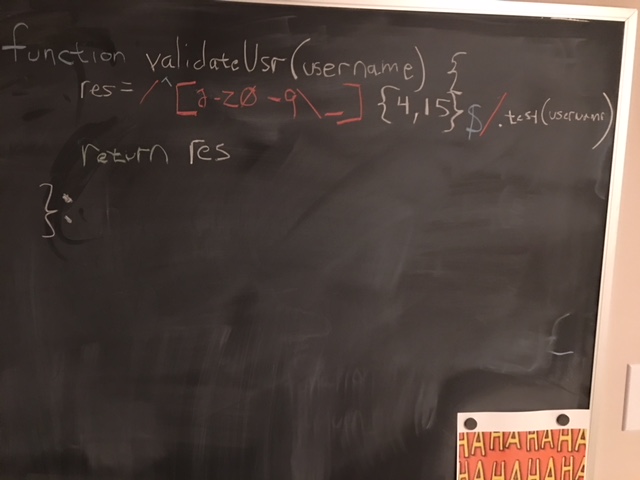 function validateUsr(username) {
res= /^[a-z0-9\_]{4,15}$/.test(username)
return res
};
HA HA HA HA
HA HA HA HA